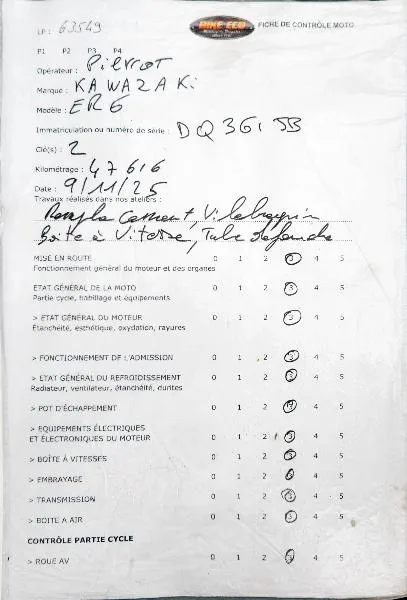 LP : 63549
BIKE ECO
FICHE DE CONTRÔLE MOTO
P1 P2 P3 P4
Opérateur : Pierrot
Marque : KAWAZAKi
Modèle : ER6
Immatriculation ou numéro de série : DQ361
Clé(s) : 2
Kilométrage : 47616
Date : 9/11/25
Travaux réalisés dans nos ateliers :
Vilebrequin
Boîte à Vitesse, Tube de fourche
MISE EN ROUTE 0 1 2 3 4 5
Fonctionnement général du moteur et des organes
ETAT GÉNÉRAL DE LA MOTO 0 1 2 3 4 5
Partie cycle, habillage et équipements
> ETAT GÉNÉRAL DU MOTEUR 0 1 2 3 4 5
Étanchéité, esthétique, oxydation, rayures
> FONCTIONNEMENT DE L'ADMISSION 0 1 2 3 4 5
> ETAT GÉNÉRAL DU REFROIDISSEMENT 0 1 2 3 4 5
Radiateur, ventilateur, étanchéité, durites
> POT D'ÉCHAPPEMENT 0 1 2 3 4 5
> EQUIPEMENTS ÉLECTRIQUES
ET ÉLECTRONIQUES DU MOTEUR 0 1 2 3 4 5
> BOÎTE À VITESSES 0 1 2 3 4 5
> EMBRAYAGE 0 1 2 3 4 5
> TRANSMISSION 0 1 2 3 4 5
> BOITE A AIR 0 1 2 3 4 5
CONTRÔLE PARTIE CYCLE
> ROUE AV 0 1 2 3 4 5